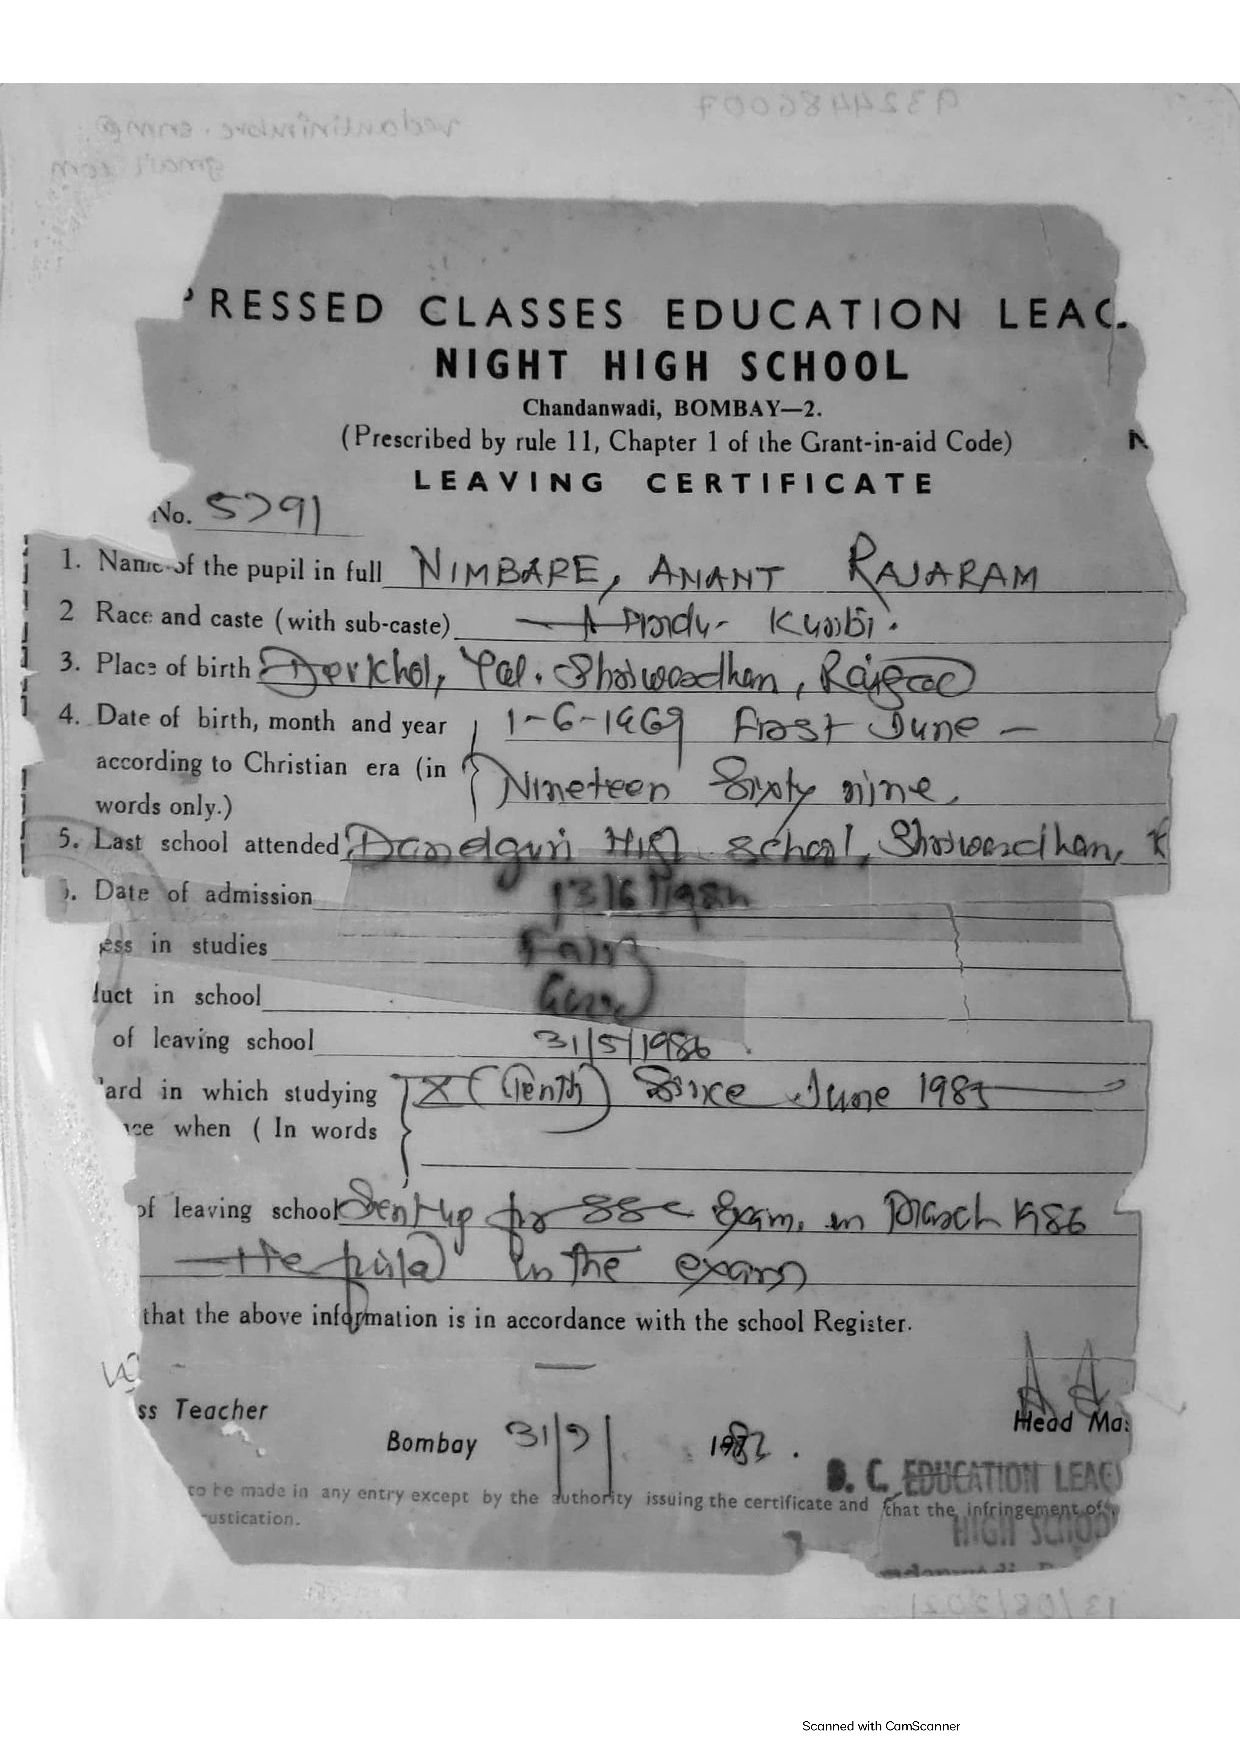 RESSED CLASSES EDUCATION LEAG
NIGHT HIGH SCHOOL
Chandanwadi, BOMBAY—2.
(Prescribed by rule 11, Chapter 1 of the Grant-in-aid Code)
LEAVING CERTIFICATE
No. 5791
1. Name of the pupil in full NIMBARE, ANANT RAJARAM
2 Race and caste (with sub-caste) Hindu- Kunbi.
3. Place of birth Dorkhol, Tal. Shriwardhan, Raigad
4. Date of birth, month and year 1-6-1969 First June —
according to Christian era (in Nineteen Sixty nine.
words only.)
5. Last school attended High School, Shriwardhan,
. Date of admission 13/6
ess in studies Fair
uct in school Good
of leaving school 31/5/1986
ard in which studying X (Tenth) Since June 1985
ce when ( In words
of leaving school Sent up for SSC Exam. in March 1986
He in the exam
that the above information is in accordance with the school Register.
ss Teacher
Head Mas
Bombay 31/7/ 1987.
D. C. EDUCATION LEAG
to be made in any entry except by the authority issuing the certificate and that the infringement of
ustication.
HIGH SCHOO
Scanned with CamScanner